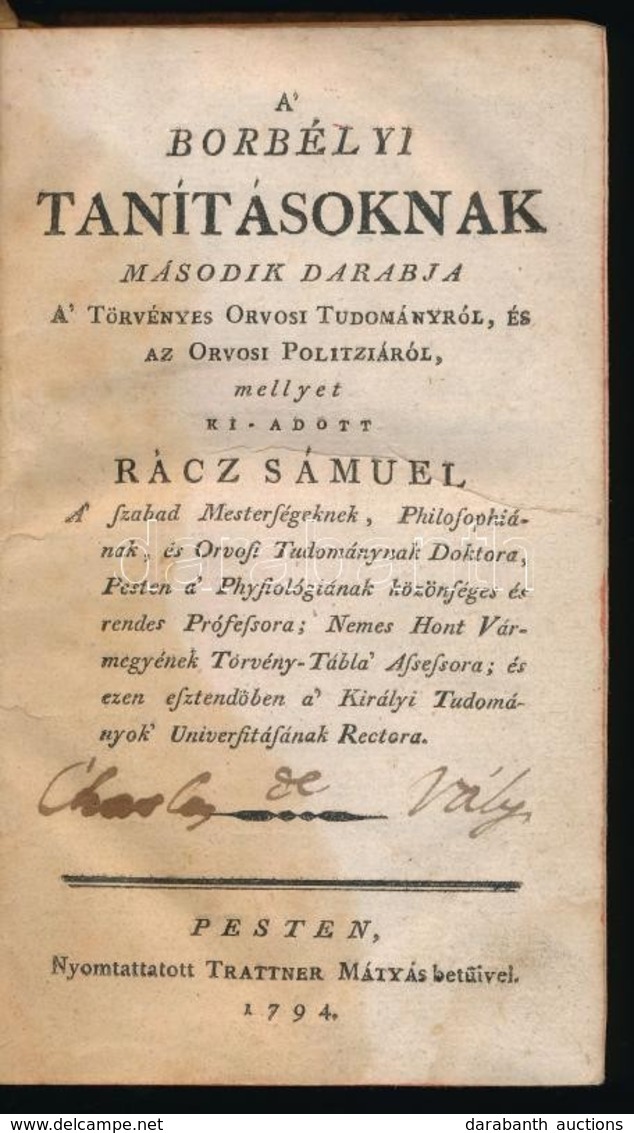 A'
BORBÉLYI
TANÍTÁSOKNAK
MÁSODIK DARABJA
A' TÖRVÉNYES ORVOSI TUDOMÁNYRÓL, ÉS
AZ ORVOSI POLITZIÁRÓL,
mellyet
KI-ADOTT
RÁCZ SÁMUEL
A' ſzabad Meſterſégeknek, Philoſophiá-
nak, és Orvoſi Tudománynak Doktora,
Peſten a' Phyſiológiának közönſéges és
rendes Prófeſsora; Nemes Hont Vár-
megyének Törvény-Tábla' Aſseſsora; és
ezen eſztendőben a' Királyi Tudomá-
nyok' Univerſitáſának Rectora.
de Vály
PESTEN,
Nyomtattatott TRATTNER MÁTYÁS betűivel.
1794.
darabanth
www.delcampe.net
darabanth auctions